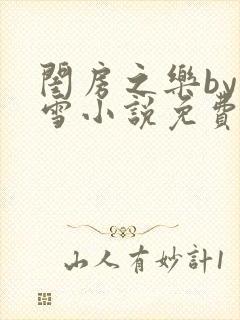 閨房之樂by
雪小說免費
山人有妙計1